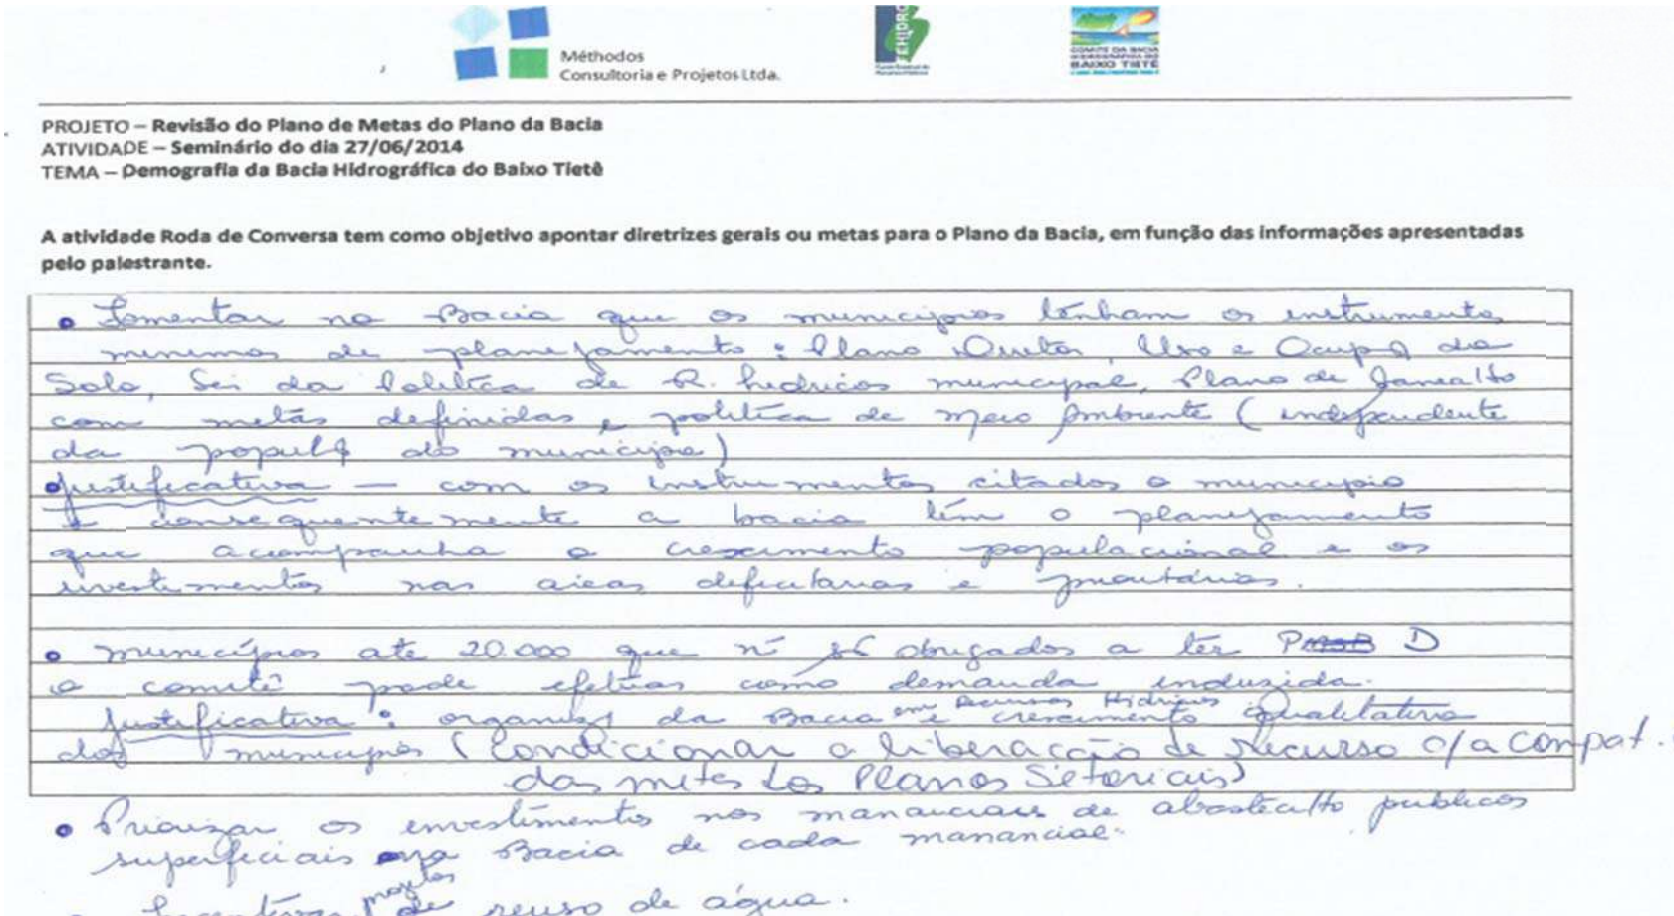 Méthodos
Consultoria e Projetos Ltda.
FEHIDRO
COMITÊ DA BACIA
HIDROGRÁFICA DO
BAIXO TIETÊ
PROJETO – Revisão do Plano de Metas do Plano da Bacia
ATIVIDADE – Seminário do dia 27/06/2014
TEMA – Demografia da Bacia Hidrográfica do Baixo Tietê
A atividade Roda de Conversa tem como objetivo apontar diretrizes gerais ou metas para o Plano da Bacia, em função das informações apresentadas
pelo palestrante.
• Fomentar na Bacia que os municípios tenham os instrumentos
minimos de planejamento: Plano Diretor, Uso e Ocup. do
Solo, Lei da Politica de R. hidricos municipal, Plano de Saneam/to
com metas definidas e politica de Meio Ambiente (independente
da popul. do municipio)
• Justificativa – com os instrumentos citados o municipio
e consequentemente a bacia têm o planejamento
que acompanha o crescimento populacional e os
investimentos nas áreas deficitarias e prioritárias.
• Municípios até 20.000 que ñ são obrigados a ter P D
o comitê pode efetuar como demanda induzida.
em Recursos Hídricos
Justificativa: organiz. da Bacia e crescimento qualitativo
dos municipios (Condicionar a liberacção de recurso c/a compat.
das metas dos Planos Setoriais)
• Priorizar os investimentos nos mananciais de abastecim/to publicos
superficiais na Bacia de cada manancial.
projetos
• Incentivar de reuso de água.